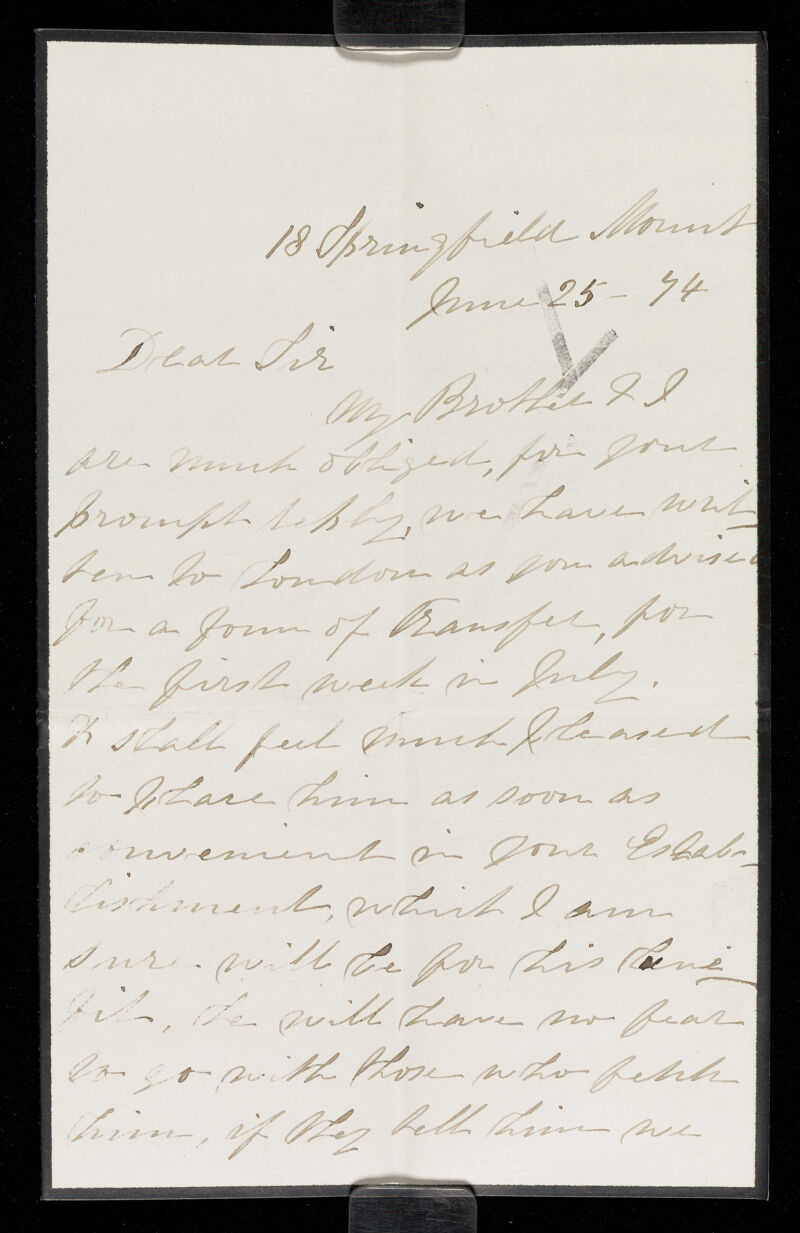 18 Springfield Mount
June 25 - 74
Dear Sir
My Brother & I
are much obliged, for your
prompt reply, we have writ-
ten to London as you advised
for a form of Transfer, for
the first week in July.
& shall feel much pleased
to place him as soon as
convenient in your Estab-
lishment, which I am
sure will be for his bene-
fit, he will have no fear
to go with those who fetch
him, if they tell him we